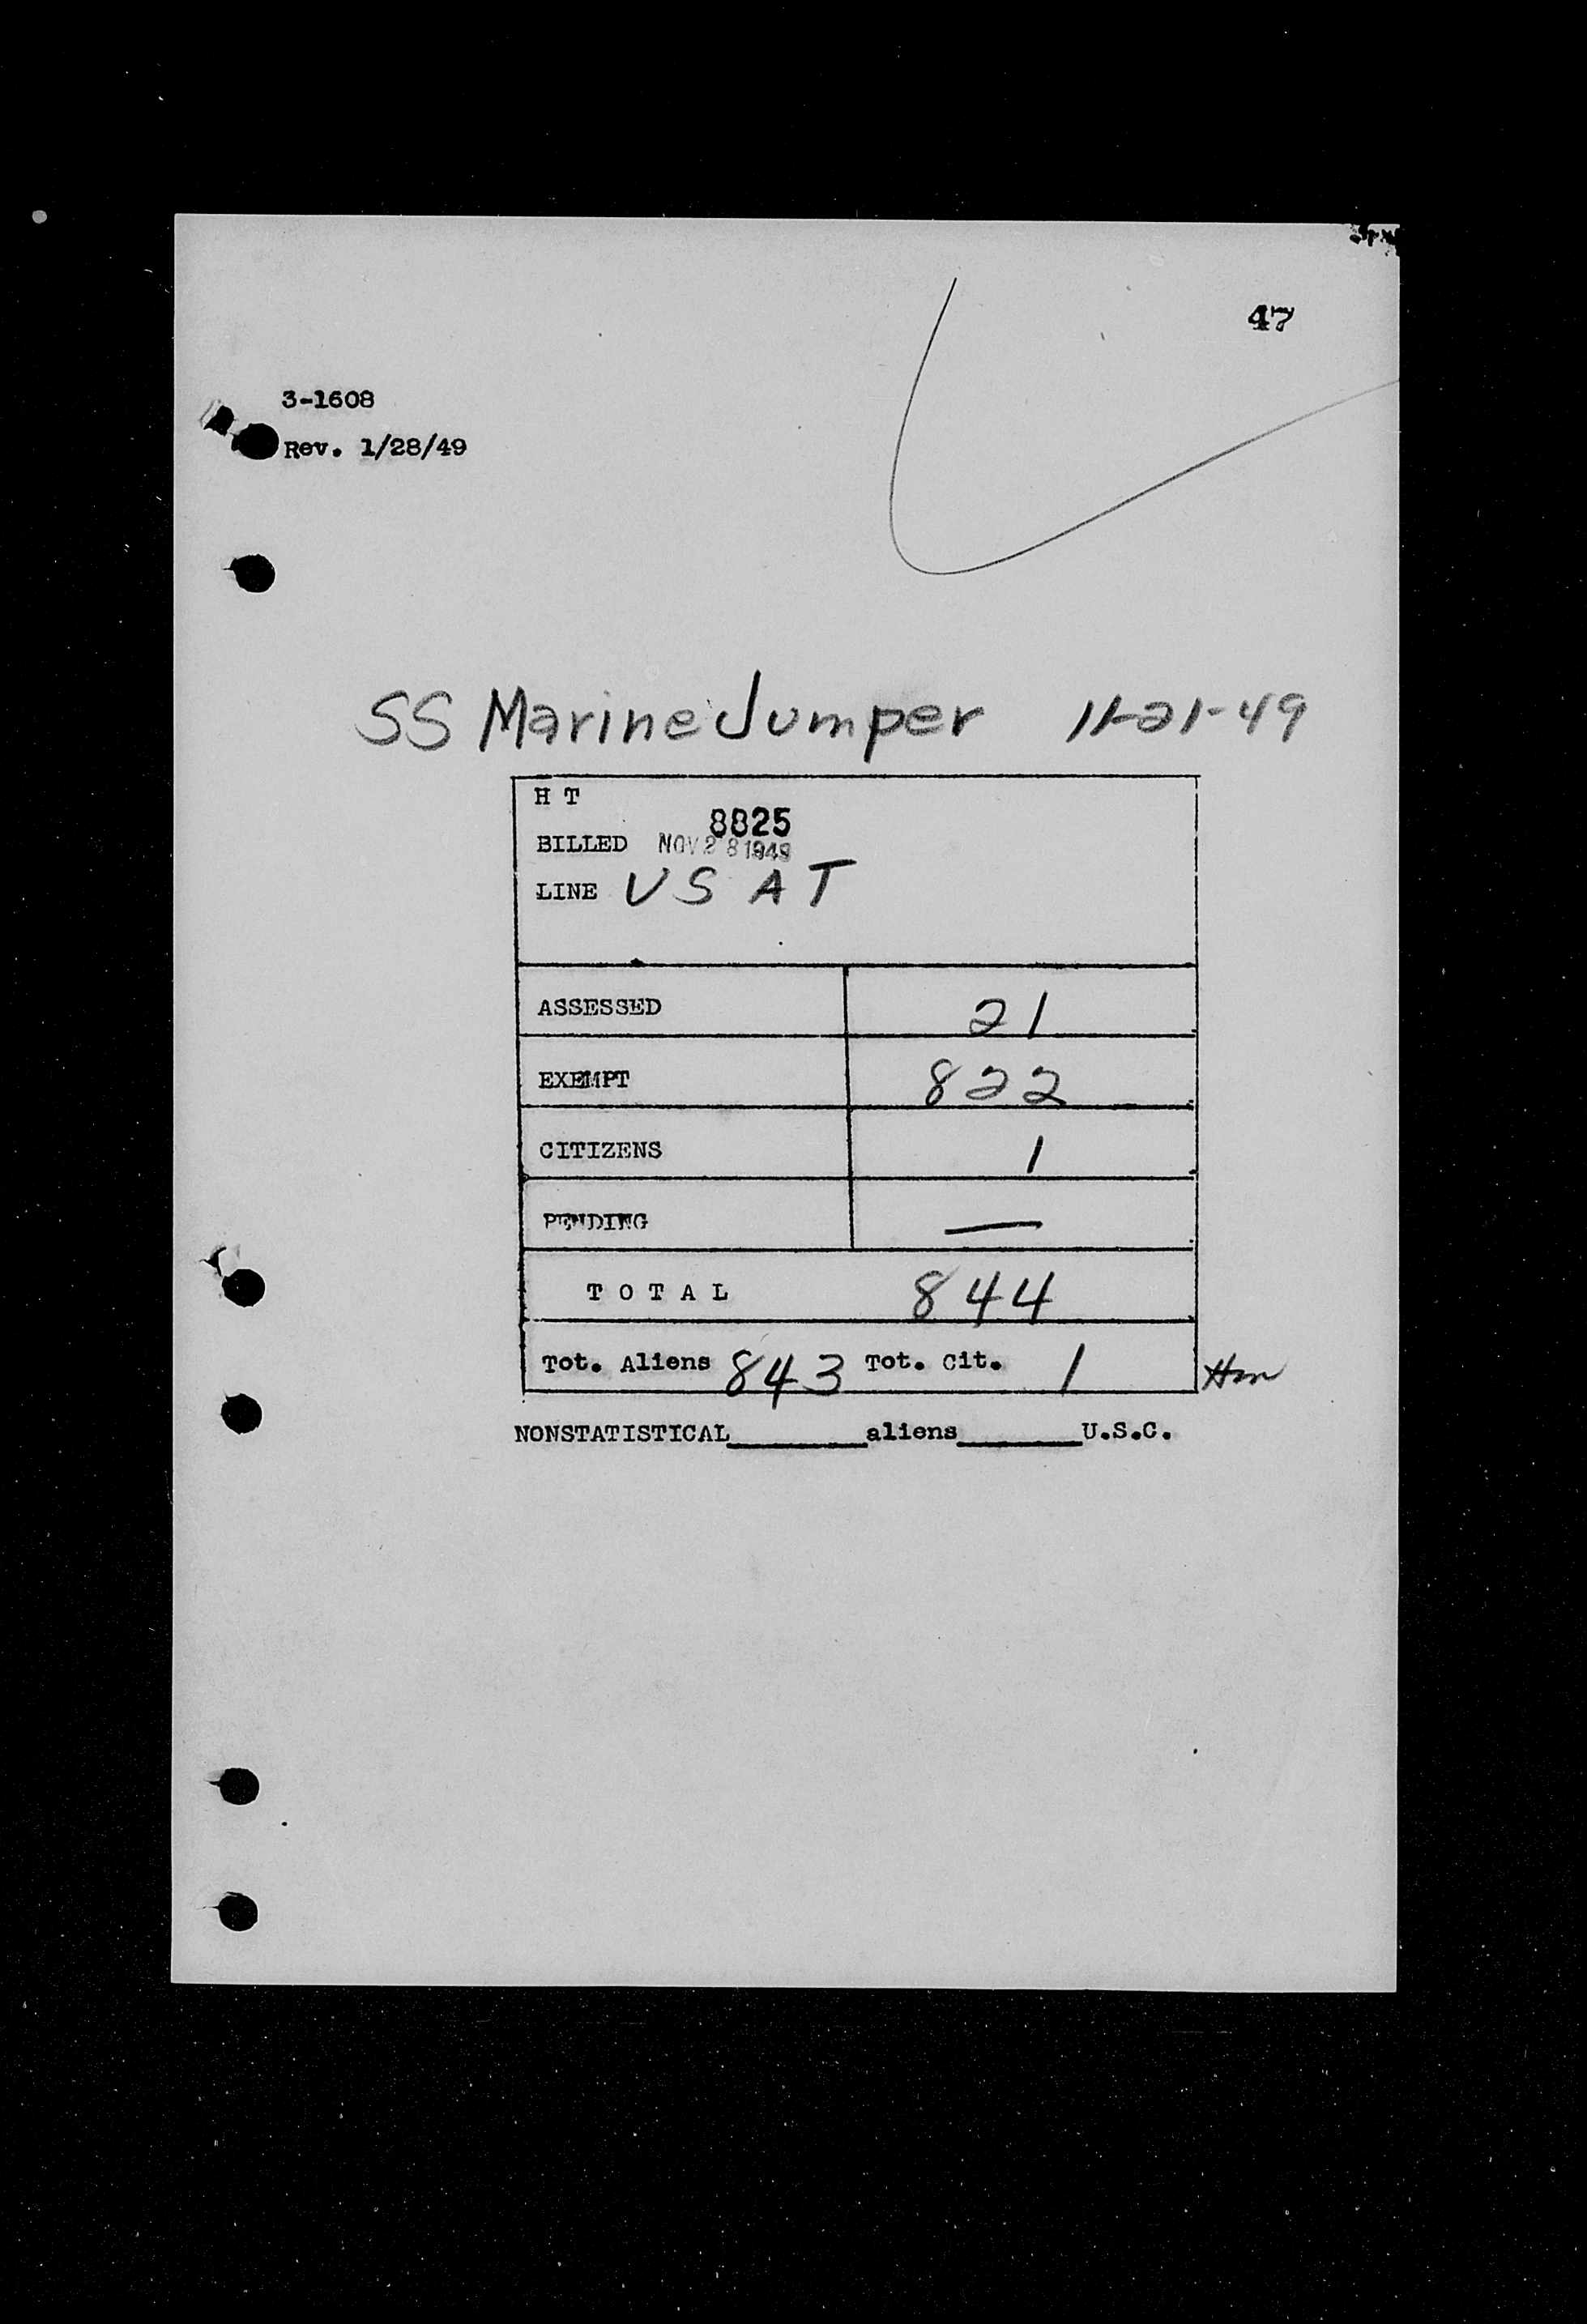 47
3-1608
Rev. 1/28/49
SS Marine Jumper 11-21-49
H T
8825
BILLED NOV 28 1949
LINE U S A T
ASSESSED 21
EXEMPT 822
CITIZENS 1
PENDING —
T O T A L 844
Tot. Aliens 843 Tot. Cit. 1
NONSTATISTICAL________aliens_______U.S.C.